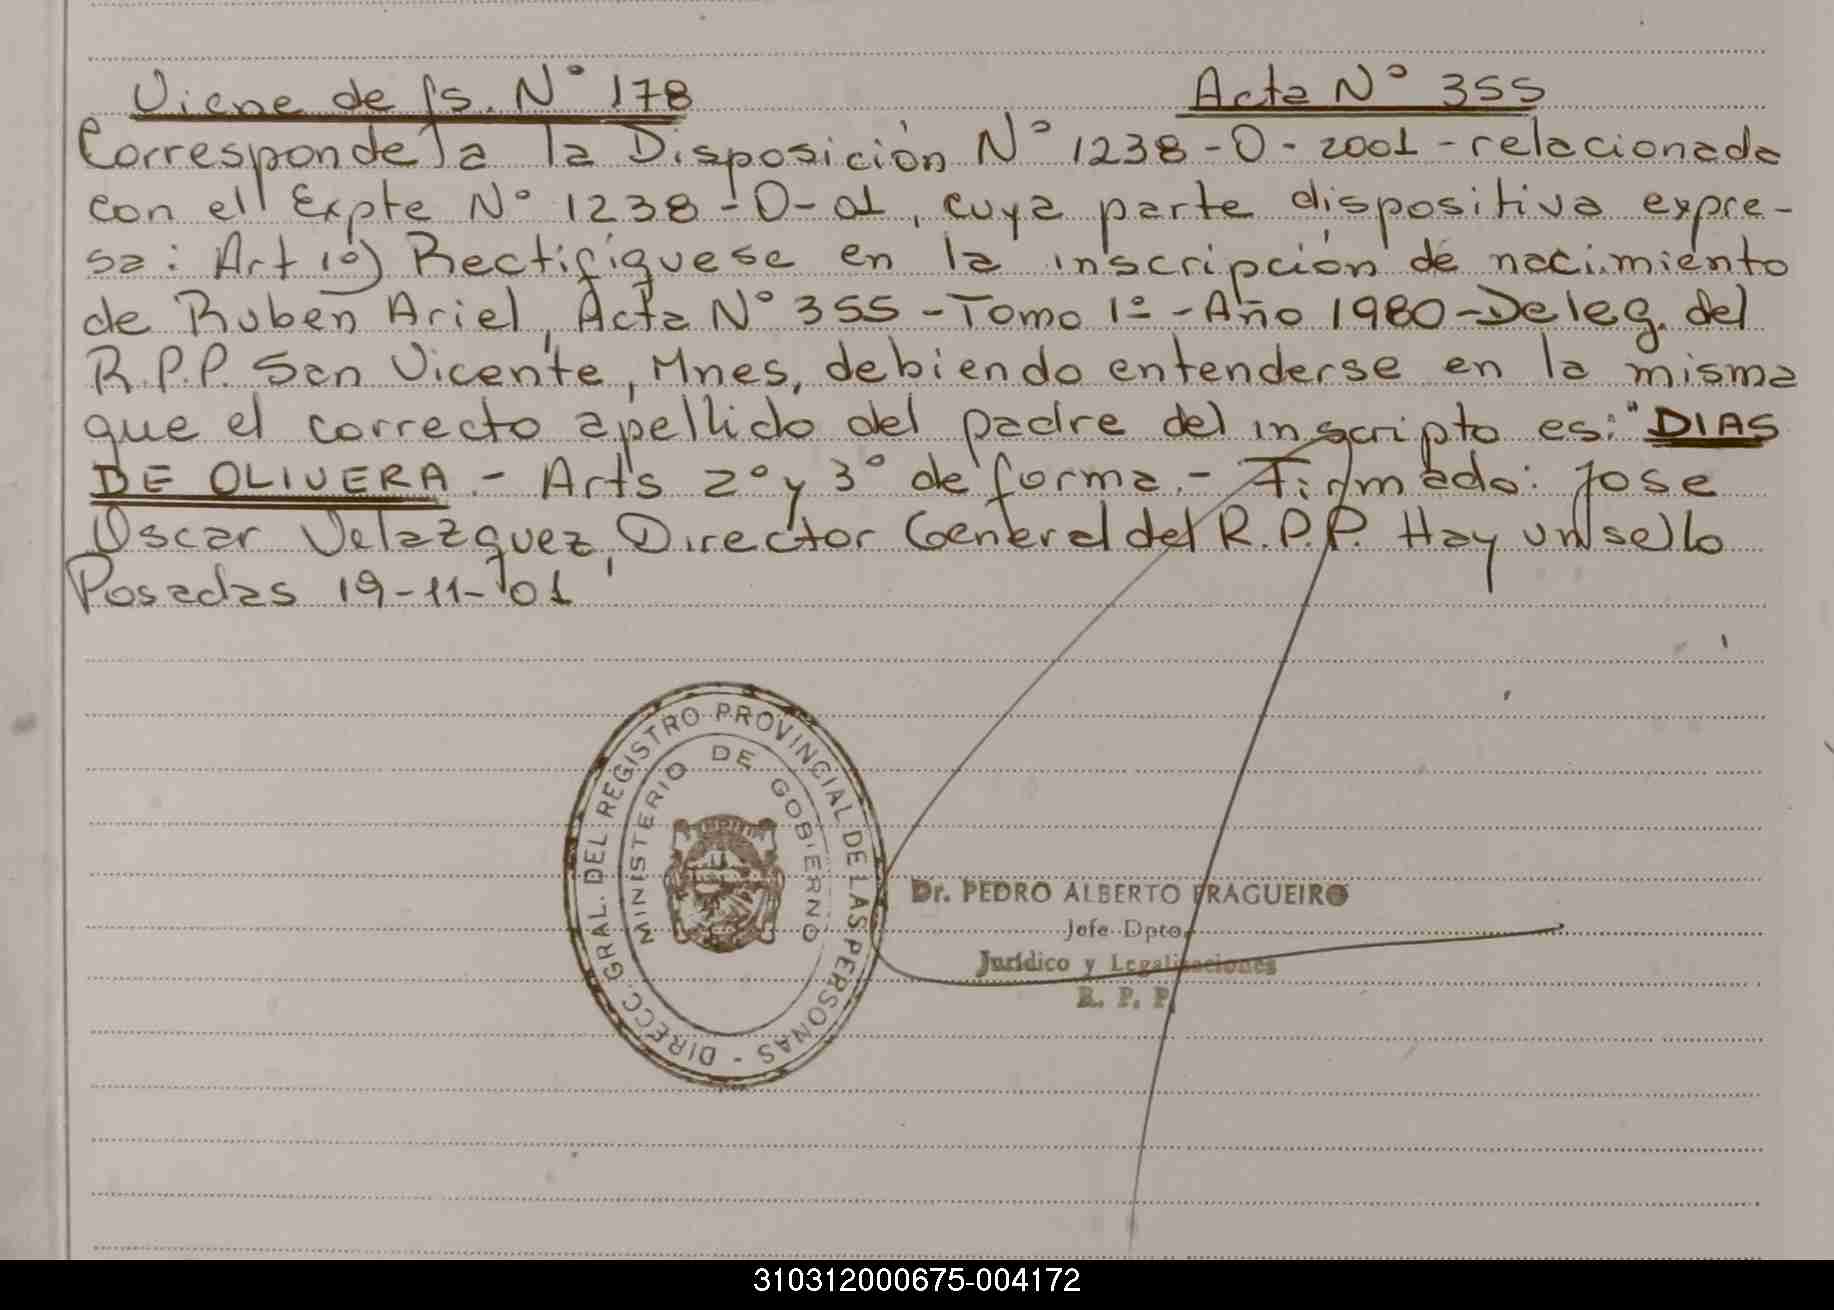 Viene de fs. Nº 178
Acta Nº 355
Corresponde a la Disposición Nº 1238-O-2001-relacionada
con el Expte Nº 1238-O-01, cuya parte dispositiva expre-
sa: Art 1º) Rectifíquese en la inscripción de nacimiento
de Ruben Ariel, Acta Nº 355-Tomo 1º-Año 1980-Deleg. del
R.P.P. San Vicente, Mnes, debiendo entenderse en la misma
que el correcto apellido del padre del inscripto es: "DIAS
DE OLIVERA.- Arts 2º y 3º de forma.- Firmado: Jose
Oscar Velazquez, Director General del R.P.P. Hay un sello
Posadas 19-11-01
DIRECC. GRAL. DEL REGISTRO PROVINCIAL DE LAS PERSONAS -
MINISTERIO DE GOBIERNO
Dr. PEDRO ALBERTO FRAGUEIRO
Jefe Dpto.
Jurídico y Legalizaciones
R. P. P.
310312000675-004172